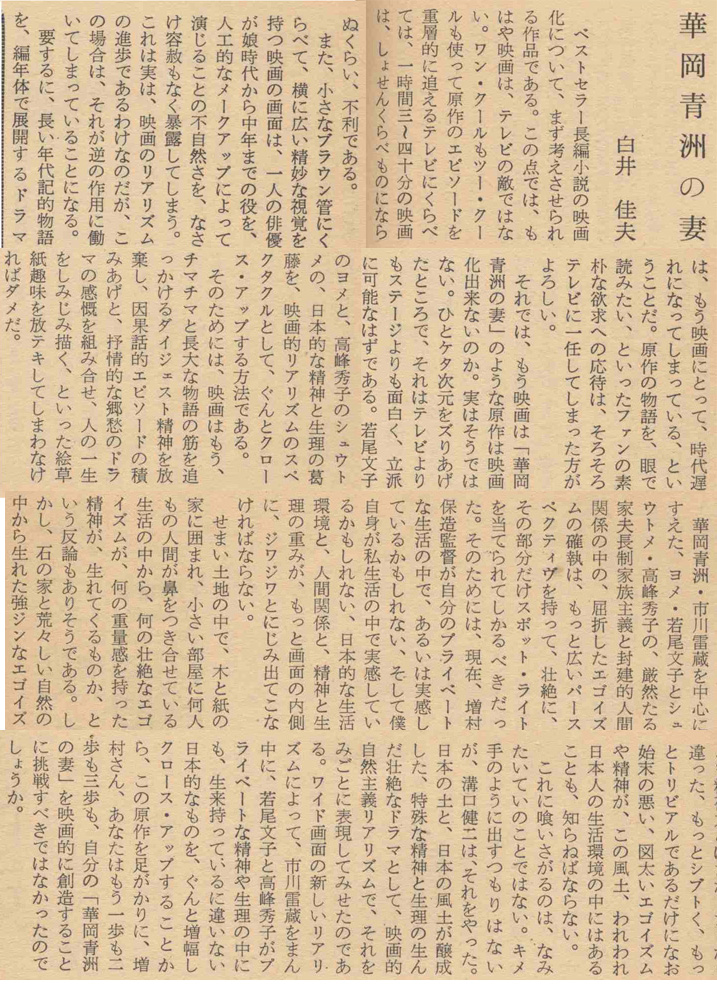 華岡青洲の妻
白井　佳夫
ベストセラー長編小説の映画
化について、まず考えさせられ
る作品である。この点では、も
はや映画は、テレビの敵ではな
い。ワン・クールもツー・クー
ルも使って原作のエピソードを
重層的に追えるテレビにくらべ
ては、一時間三〜四十分の映画
は、しょせんくらべものになら
ぬくらい、不利である。
また、小さなブラウン管にく
らべて、横に広い精妙な視覚を
持つ映画の画面は、一人の俳優
が娘時代から中年までの役を、
人工的なメークアップによって
演じることの不自然さを、なさ
け容赦もなく暴露してしまう。
これは実は、映画のリアリズム
の進歩であるわけなのだが、こ
の場合は、それが逆の作用に働
いてしまっていることになる。
要するに、長い年代記的物語
を、編年体で展開するドラマ
は、もう映画にとって、時代遅
れになってしまっている、とい
うことだ。原作の物語を、眼で
読みたい、といったファンの素
朴な欲求への応待は、そろそろ
テレビに一任してしまった方が
よろしい。
それでは、もう映画は「華岡
青洲の妻」のような原作は映画
化出来ないのか。実はそうでは
ない。ひとケタ次元をズリあげ
たところで、それはテレビより
もステージよりも面白く、立派
に可能なはずである。若尾文子
のヨメと、高峰秀子のシュウト
メの、日本的な精神と生理の葛
藤を、映画的リアリズムのスペ
クタクルとして、ぐんとクロー
ス・アップする方法である。
そのためには、映画はもう、
チマチマと長大な物語の筋を追
っかけるダイジェスト精神を放
棄し、因果話的エピソードの積
みあげと、抒情的な郷愁のドラ
マの感慨を組み合せ、人の一生
をしみじみ描く、といった絵草
紙趣味を放テキしてしまわなけ
ればダメだ。
華岡青洲・市川雷蔵を中心に
すえた、ヨメ・若尾文子とシュ
ウトメ・高峰秀子の、厳然たる
家夫長制家族主義と封建的人間
関係の中の、屈折したエゴイズ
ムの確執は、もっと広いパース
ペクティヴを持って、壮絶に、
その部分だけスポット・ライト
を当てられてしかるべきだっ
た。そのためには、現在、増村
保造監督が自分のプライベート
な生活の中で、あるいは実感し
ているかもしれない、そして僕
自身が私生活の中で実感してい
るかもしれない、日本的な生活
環境と、人間関係と、精神と生
理の重みが、もっと画面の内側
に、ジワジワとにじみ出てこな
ければならない。
せまい土地の中で、木と紙の
家に囲まれ、小さい部屋に何人
もの人間が鼻をつき合せている
生活の中から、何の壮絶なエゴ
イズムが、何の重量感を持った
精神が、生れてくるものか、と
いう反論もありそうである。し
かし、石の家と荒々しい自然の
中から生れた強ジンなエゴイズ
違った、もっとシブトく、もっ
とトリビアルであるだけになお
始末の悪い、図太いエゴイズム
や精神が、この風土、われわれ
日本人の生活環境の中にはある
ことも、知らねばならない。
これに喰いさがるのは、なみ
たいていのことではない。キメ
手のように出すつもりはない
が、溝口健二は、それをやった。
日本の土と、日本の風土が醸成
した、特殊な精神と生理の生ん
だ壮絶なドラマとして、映画的
自然主義リアリズムで、それを
みごとに表現してみせたのであ
る。ワイド画面の新しいリアリ
ズムによって、市川雷蔵をまん
中に、若尾文子と高峰秀子がプ
ライベートな精神や生理の中に
も、生来持っているに違いない
日本的なものを、ぐんと増幅し
クロース・アップすることか
ら、この原作を足がかりに、増
村さん、あなたはもう一歩も二
歩も三歩も、自分の「華岡青洲
の妻」を映画的に創造すること
に挑戦すべきではなかったので
しょうか。